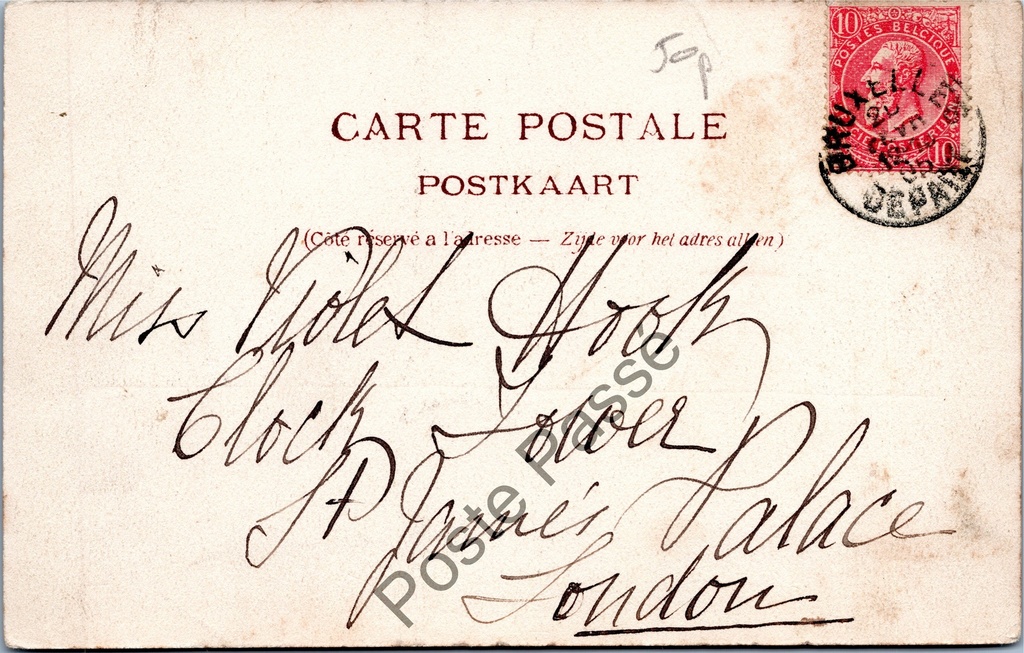 50p
10 10
POSTES BELGIQUE
BRUXELL
DEPART
CARTE POSTALE
POSTKAART
(Côté réservé a l'adresse — Zijde voor het adres alleen)
Miss Violet Hook
Clock Tower
St James' Palace
London
Poste Passé